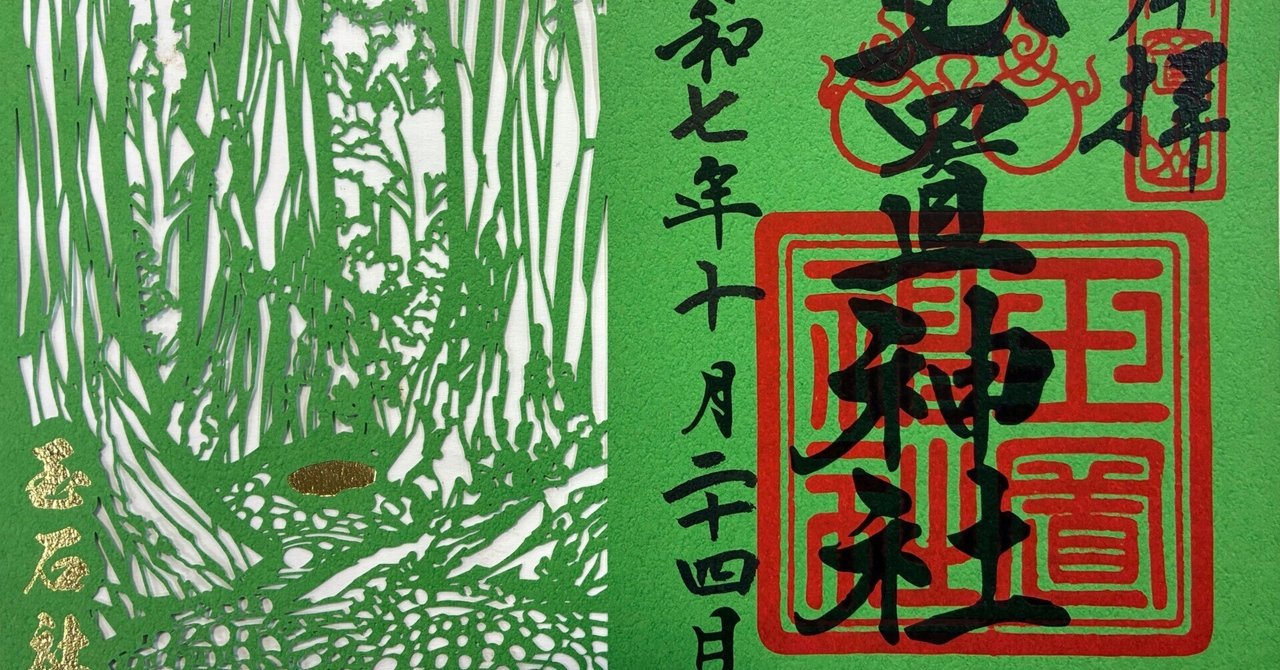 拝
玉置神社
玉置神社
和七年十月二十四日
玉石社